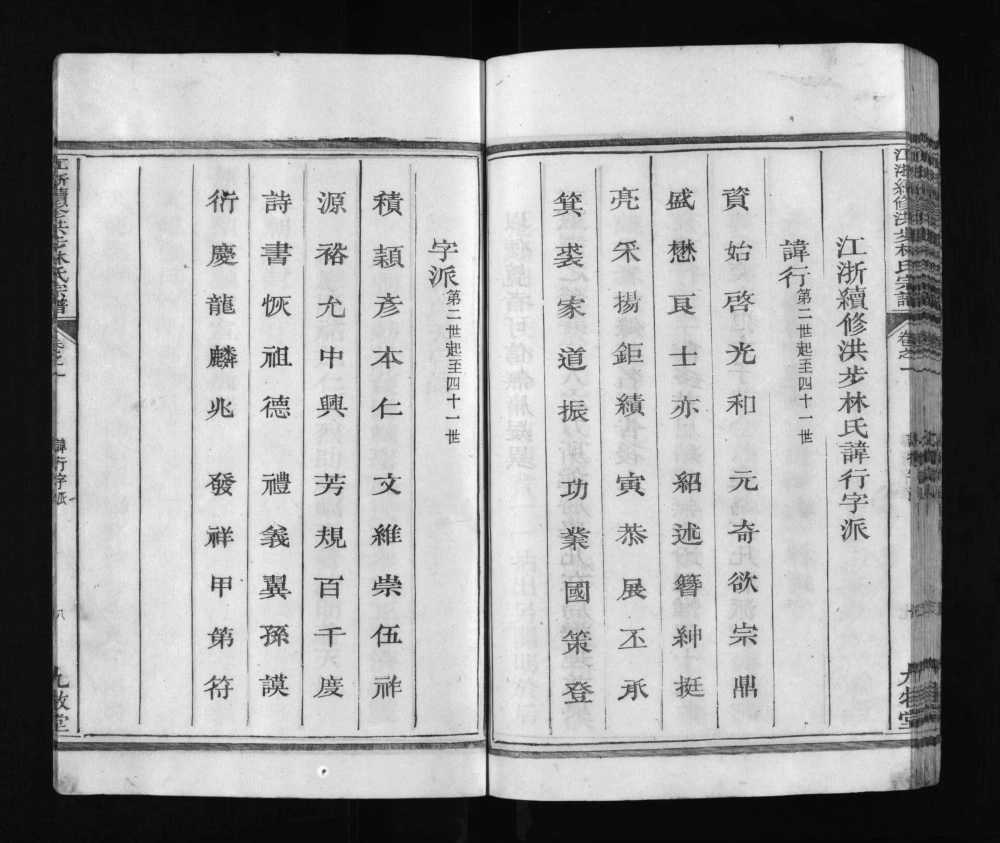 江浙續修洪步林氏諱行字派
諱行第二世起至四十一世
資始啓光和 元奇欲宗鼎
盛懋良士亦 紹述簪紳挺
亮采揚鉅績 寅恭展丕承
箕裘家道振 功業國策登
字派第二世起至四十一世
積穎彥本仁 文維崇伍祥
源裕允中興 芳規百千慶
詩書恢祖德 禮義翼孫謨
衍慶龍麟兆 發祥甲第符
江浙續修洪步林氏宗譜
卷之一
諱行字派
八
九牧堂